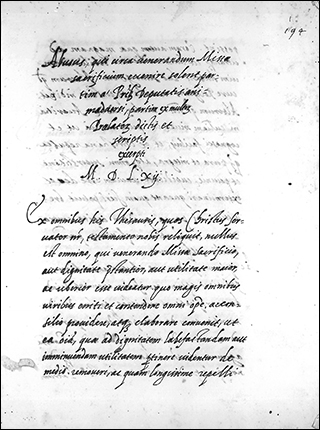 194
Abusus, qui circa venerandum Missæ
sacrificium evenire solent, par-
tim a Patribus Deputatis ani-
madversi, partim ex multorum
Prælatorum dictis et
scriptis
excerpti
M. D. Lxij
Ex omnibus his Thesauris, quos Christus ser-
vator nr, testamento nobis reliquit, nullus
est omnino, qui venerando Missæ Sacrificio,
aut dignitate præstantior, aut utilitate maior,
ac uberior esse videatur. quo magis omnibus
viribus eniti et contendere omni ope,
providere, atq elaborare convenit, ut
ea oia, quæ ad dignitatem labefactandam aut
imminuendam utilitatem ptinere videntur de
medio removeri, ac quam longissime repelli